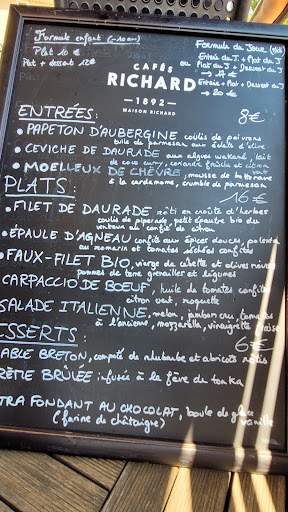 Formule enfant (-10 ans)
Plat 10 €
Plat + dessert 12€
Formule du Jour
Entrée du J. + Plat du J
ou Plat du J + Dessert du J
→ 17 €
Entrée + Plat + Dessert du J
→ 20 €
CAFÉS
RICHARD
1892
MAISON RICHARD
ENTRÉES : 8€
• PAPETON D'AUBERGINE coulis de poivrons
tuile de parmesan aux éclats d'olive
• CEVICHE DE DAURADE aux algues wakamé, lait
de coco, coriandre fraîche et citron
vert
• MOELLEUX DE CHÈVRE, mousse de betterave
à la cardamome, crumble de parmesan
PLATS : 16 €
• FILET DE DAURADE rôti en croûte d'herbes
coulis de piperade, petit épeautre bio du
ventoux au confit de citron
• ÉPAULE D'AGNEAU confite aux épices douces, polenta
au romarin et tomates séchées confites
• FAUX-FILET BIO, vierge de civette et olives noires
pommes de terre grenailles et légumes
CARPACCIO DE BOEUF, huile de tomates confites
citron vert, roquette
SALADE ITALIENNE, melon, jambon cru, tomates
à l'ancienne, mozzarella, vinaigrette fraise
ESSERTS : 6€
ABLE BRETON, compotée de rhubarbe et abricots rôtis
RÈME BRÛLÉE infusée à la fève de tonka
TRA FONDANT AU CHOCOLAT, boule de glace
(farine de châtaigne) vanille